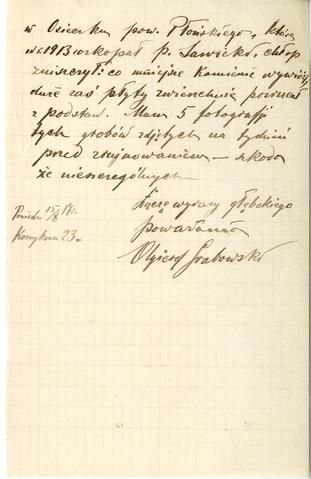 w Osiecku pow. Płońskiego, które
w r. 1913 rozkopał p. Sawicki, chłop
zniszczył: co mniejsze kamienie wywiózł
duże zaś płyty zwierzchnie pozwalał
z podstaw. Mam 5 fotografji
tych grobów zdjętych na tydzień
przed zrujnowaniem — szkoda
że nieszczególnych
Łączę wyrazy głębokiego
poważania
Olgierd Grabowski
15/X 17 r.
23 m.